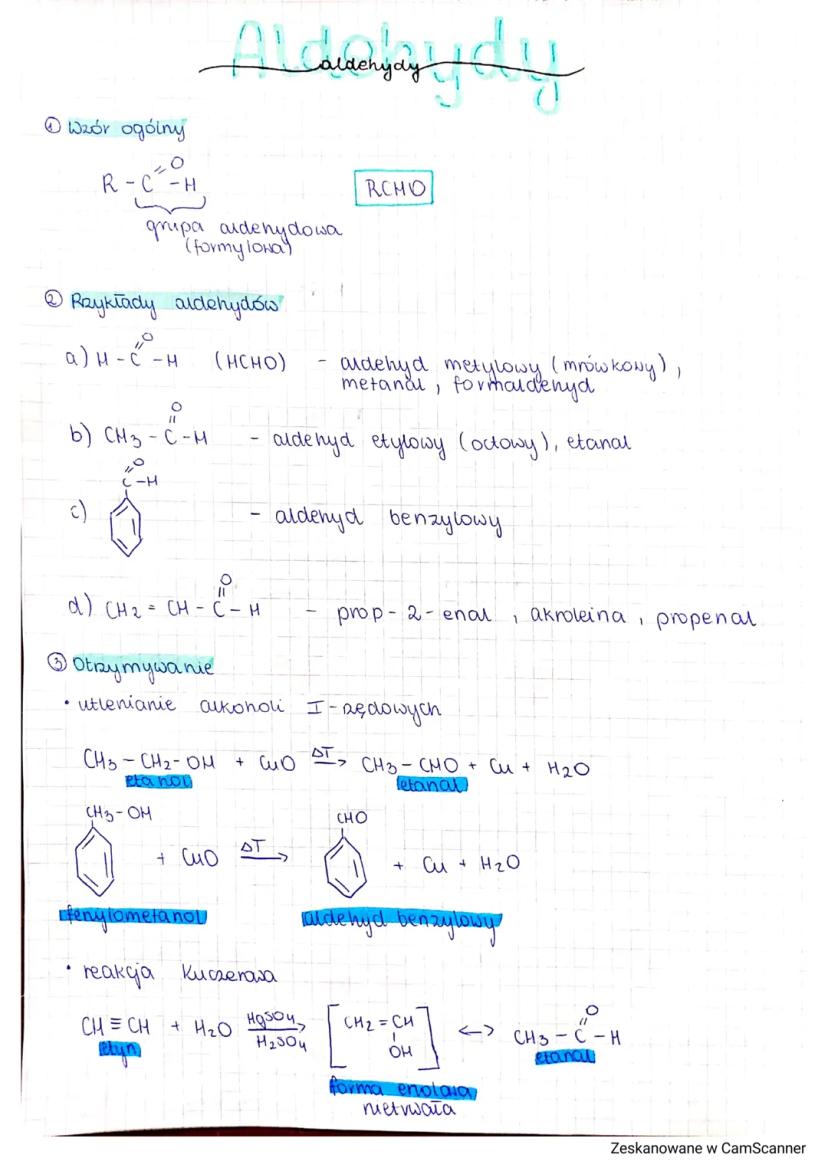 Aldehydy
aldehydy
① Wzór ogólny
O
R - C - H
RCHO
grupa aldehydowa
(formylowa)
② Przykłady aldehydów
O
a) H - C - H (HCHO) - aldehyd metylowy (mrówkowy),
metanal, formaldehyd
O
b) CH3 - C - H - aldehyd etylowy (octowy), etanal
O
C - H
c) - aldehyd benzylowy
O
d) CH2 = CH - C - H - prop-2-enal, akroleina, propenal
③ Otrzymywanie
• utlenianie alkoholi I-rzędowych
CH3 - CH2 - OH + CuO ΔT → CH3 - CHO + Cu + H2O
etanol etanal
CH3 - OH CHO
+ CuO ΔT → + Cu + H2O
fenylometanol aldehyd benzylowy
• reakcja Kuczerowa
CH ≡ CH + H2O HgSO4 → [CH2 = CH] ↔ CH3 - C - H
H2SO4 OH O
etyn etanal
forma enolowa
nietrwała
Zeskanowane w CamScanner